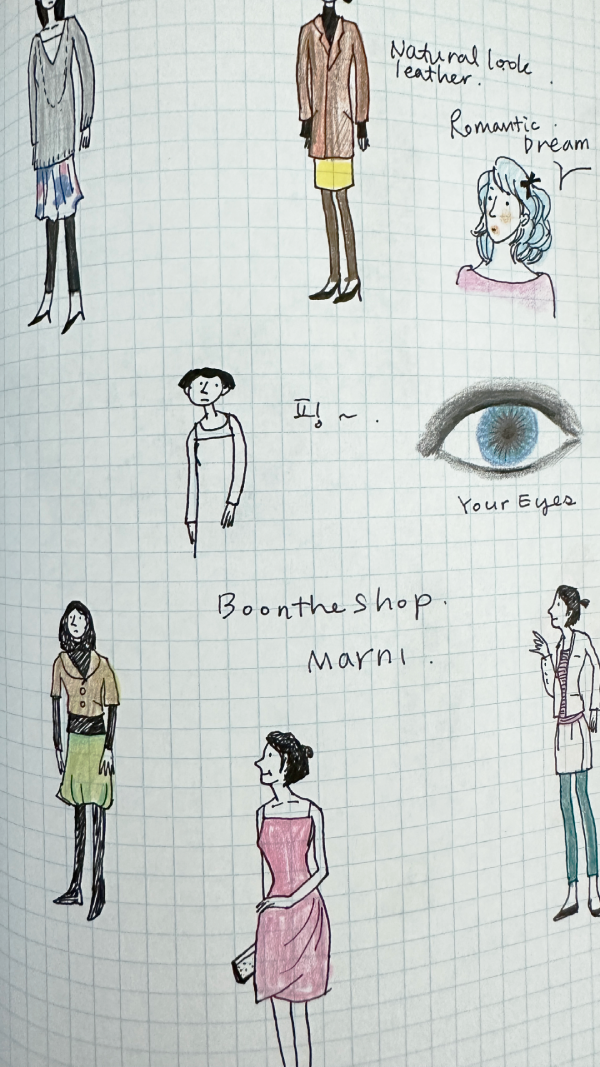 Natural look
leather.
Romantic.
Dream
핑~.
Your Eyes
Boontheshop.
Marni.